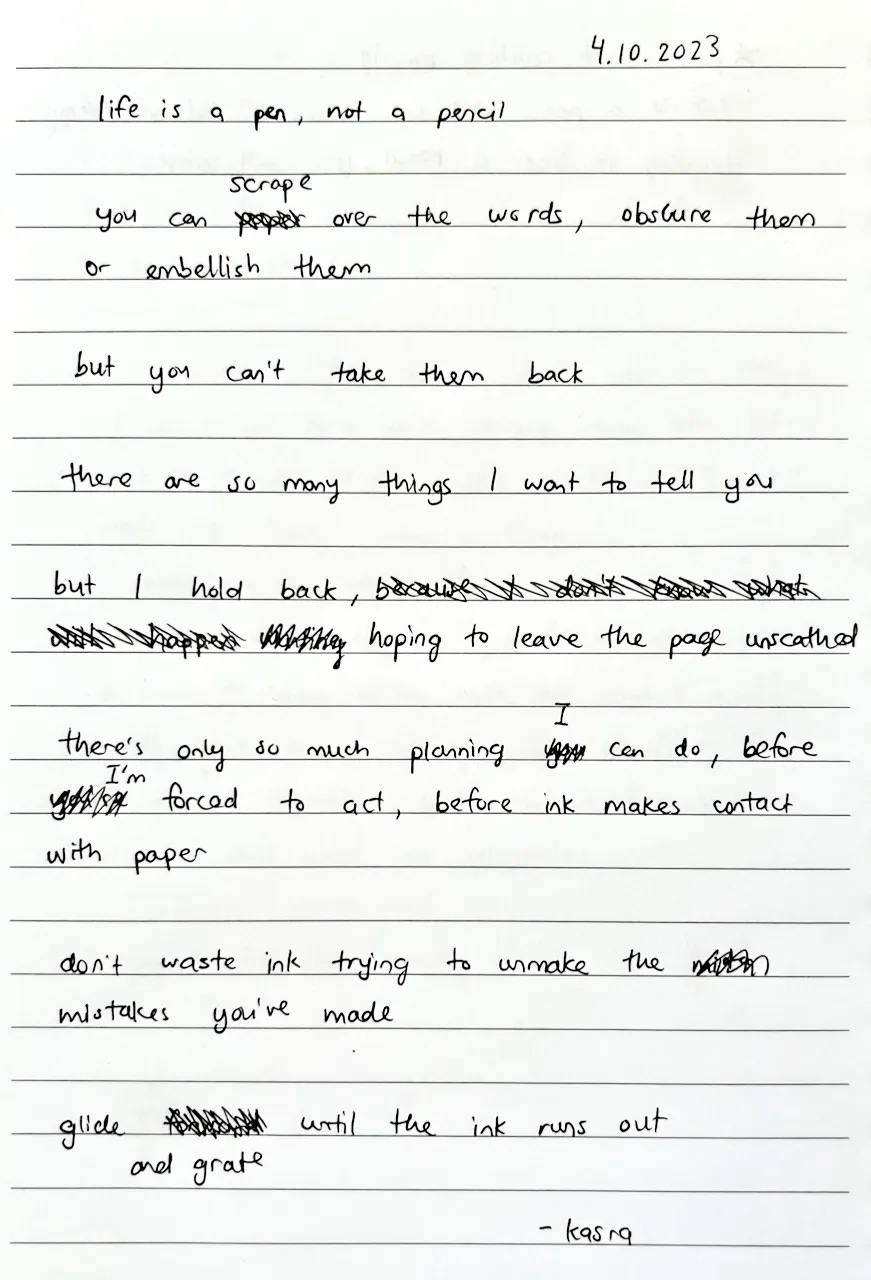 4.10.2023
life is a pen, not a pencil
scrape
you can over the words, obscure them
or embellish them
but you can't take them back
there are so many things I want to tell you
but I hold back, because I don't know what
will happen hoping to leave the page unscathed
I
there's only so much planning you can do, before
I'm
forced to act, before ink makes contact
with paper
don't waste ink trying to unmake the
mistakes you've made
glide until the ink runs out
and grate
- kasra